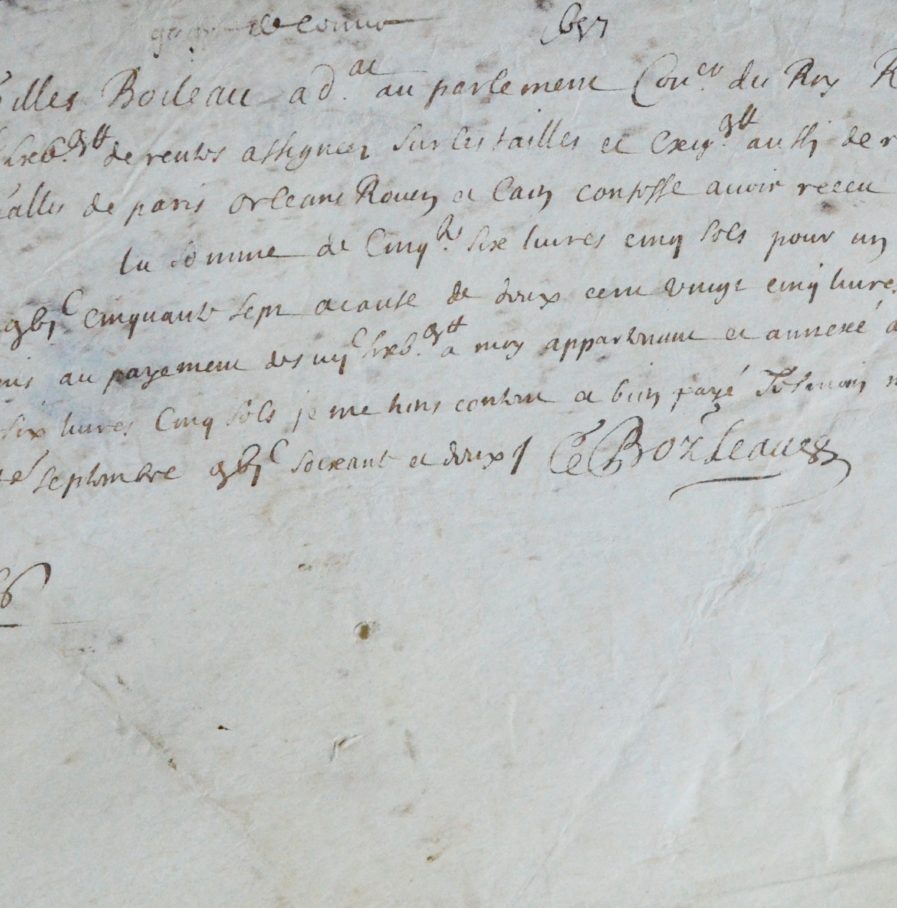 1657
Gilles Boileau ad.at au parlement Con.er du Roy R
de rentes assignez sur les tailles et aussi de r
de paris orleans Rouen et Caen confesse avoir receu
la somme de Cinq.te six livres cinq sols pour un
cinquante sept acause de deux cent vingt cinq livres
au payement des a moy appartenant et annexé a
six livres Cinq sols je me tiens content et bien payé Tesmoin
septembre soixante et deux / Boileau